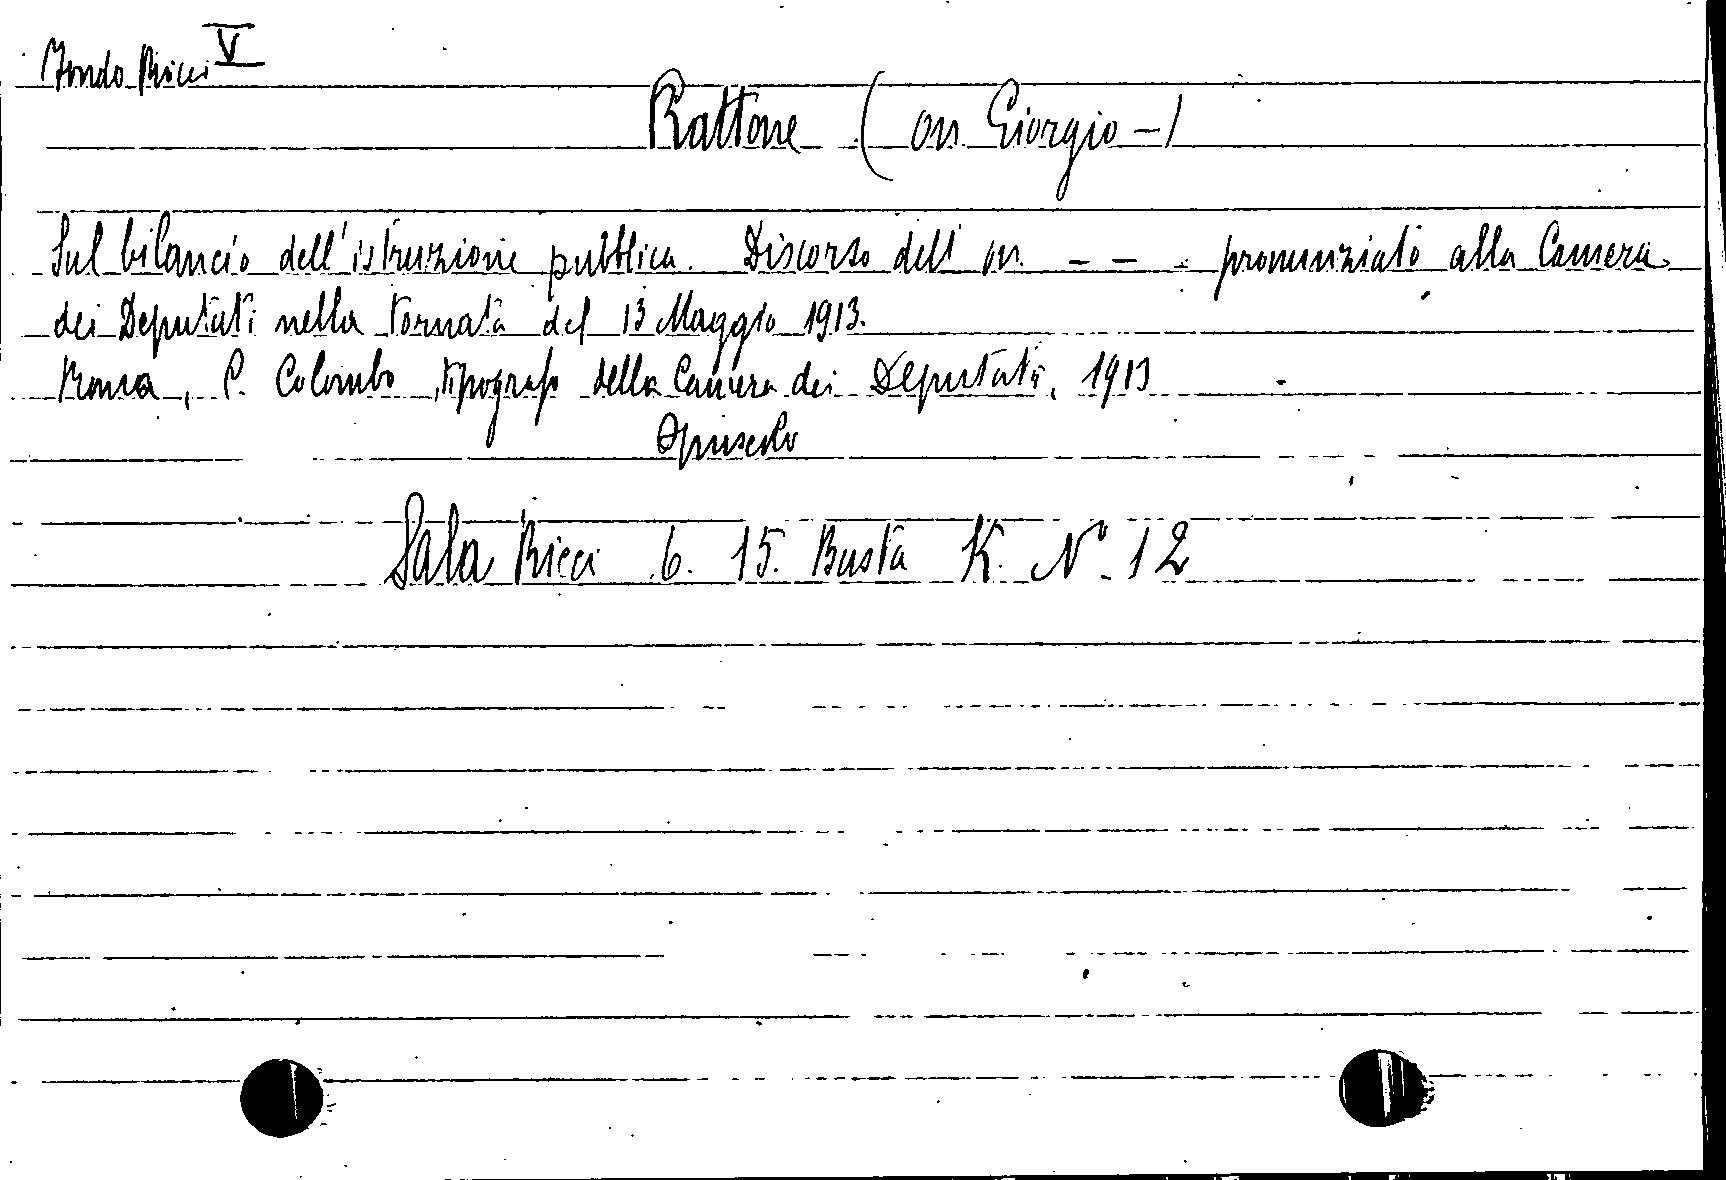 Fondo Ricci V
Rattone (on. Giorgio -)
Sul bilancio dell'istruzione pubblica. Discorso dell'on. - - . pronunziato alla Camera
dei Deputati nella tornata del 13 Maggio 1913.
Roma, C. Colombo, tipografo della Camera dei Deputati, 1913
Opuscolo
Sala Ricci 6. 15. Busta K. N° 12